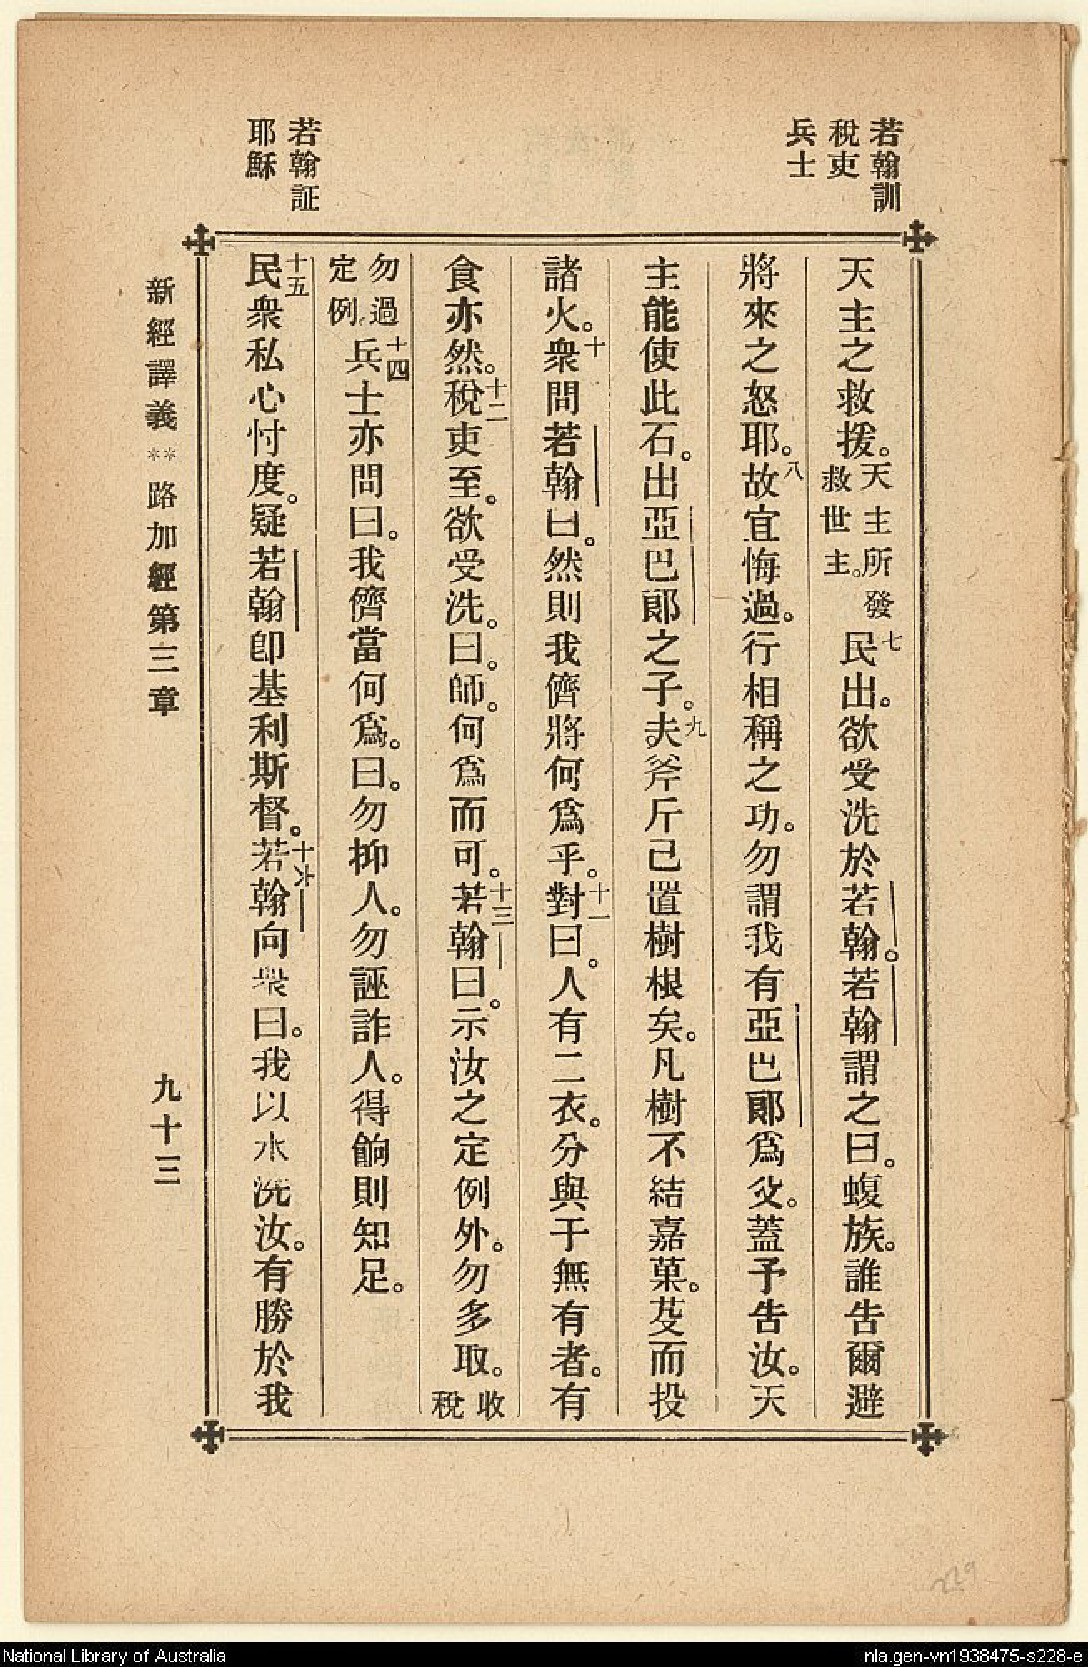 若翰訓
稅吏
兵士
若翰証
耶穌
天主之救援。天主所發救世主。七民出。欲受洗於若翰。若翰謂之曰。蝮族。誰告爾避
將來之怒耶。八故宜悔過。行相稱之功。勿謂我有亞巴郞爲父。蓋予告汝。天
主能使此石。出亞巴郞之子。九夫斧斤已置樹根矣。凡樹不結嘉菓。芟而投
諸火。十衆問若翰曰。然則我儕將何爲乎。十一對曰。人有二衣。分與于無有者。有
食亦然。十二稅吏至。欲受洗。曰。師。何爲而可。十三若翰曰。示汝之定例外。勿多取。收稅
勿過定例。十四兵士亦問曰。我儕當何爲。曰。勿抑人。勿誣詐人。得餉則知足。
十五民衆私心忖度。疑若翰卽基利斯督。十六若翰向衆曰。我以水洗汝。有勝於我
新經譯義**路加經第三章 九十三
229
National Library of Australia
nla.gen-vn1938475-s228-e